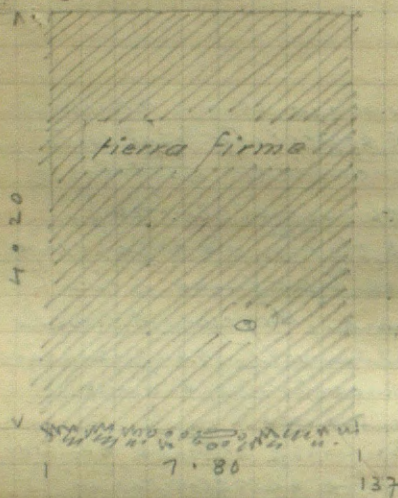 tierra firme
4.20
θ
1.80
137